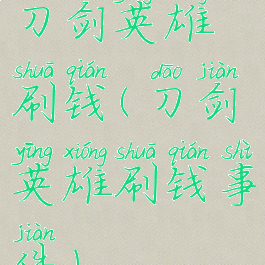 刀剑英雄
shuā qián dāo jiàn
刷钱(刀剑
yīng xióng shuā qián shì
英雄刷钱事
jiàn
件)